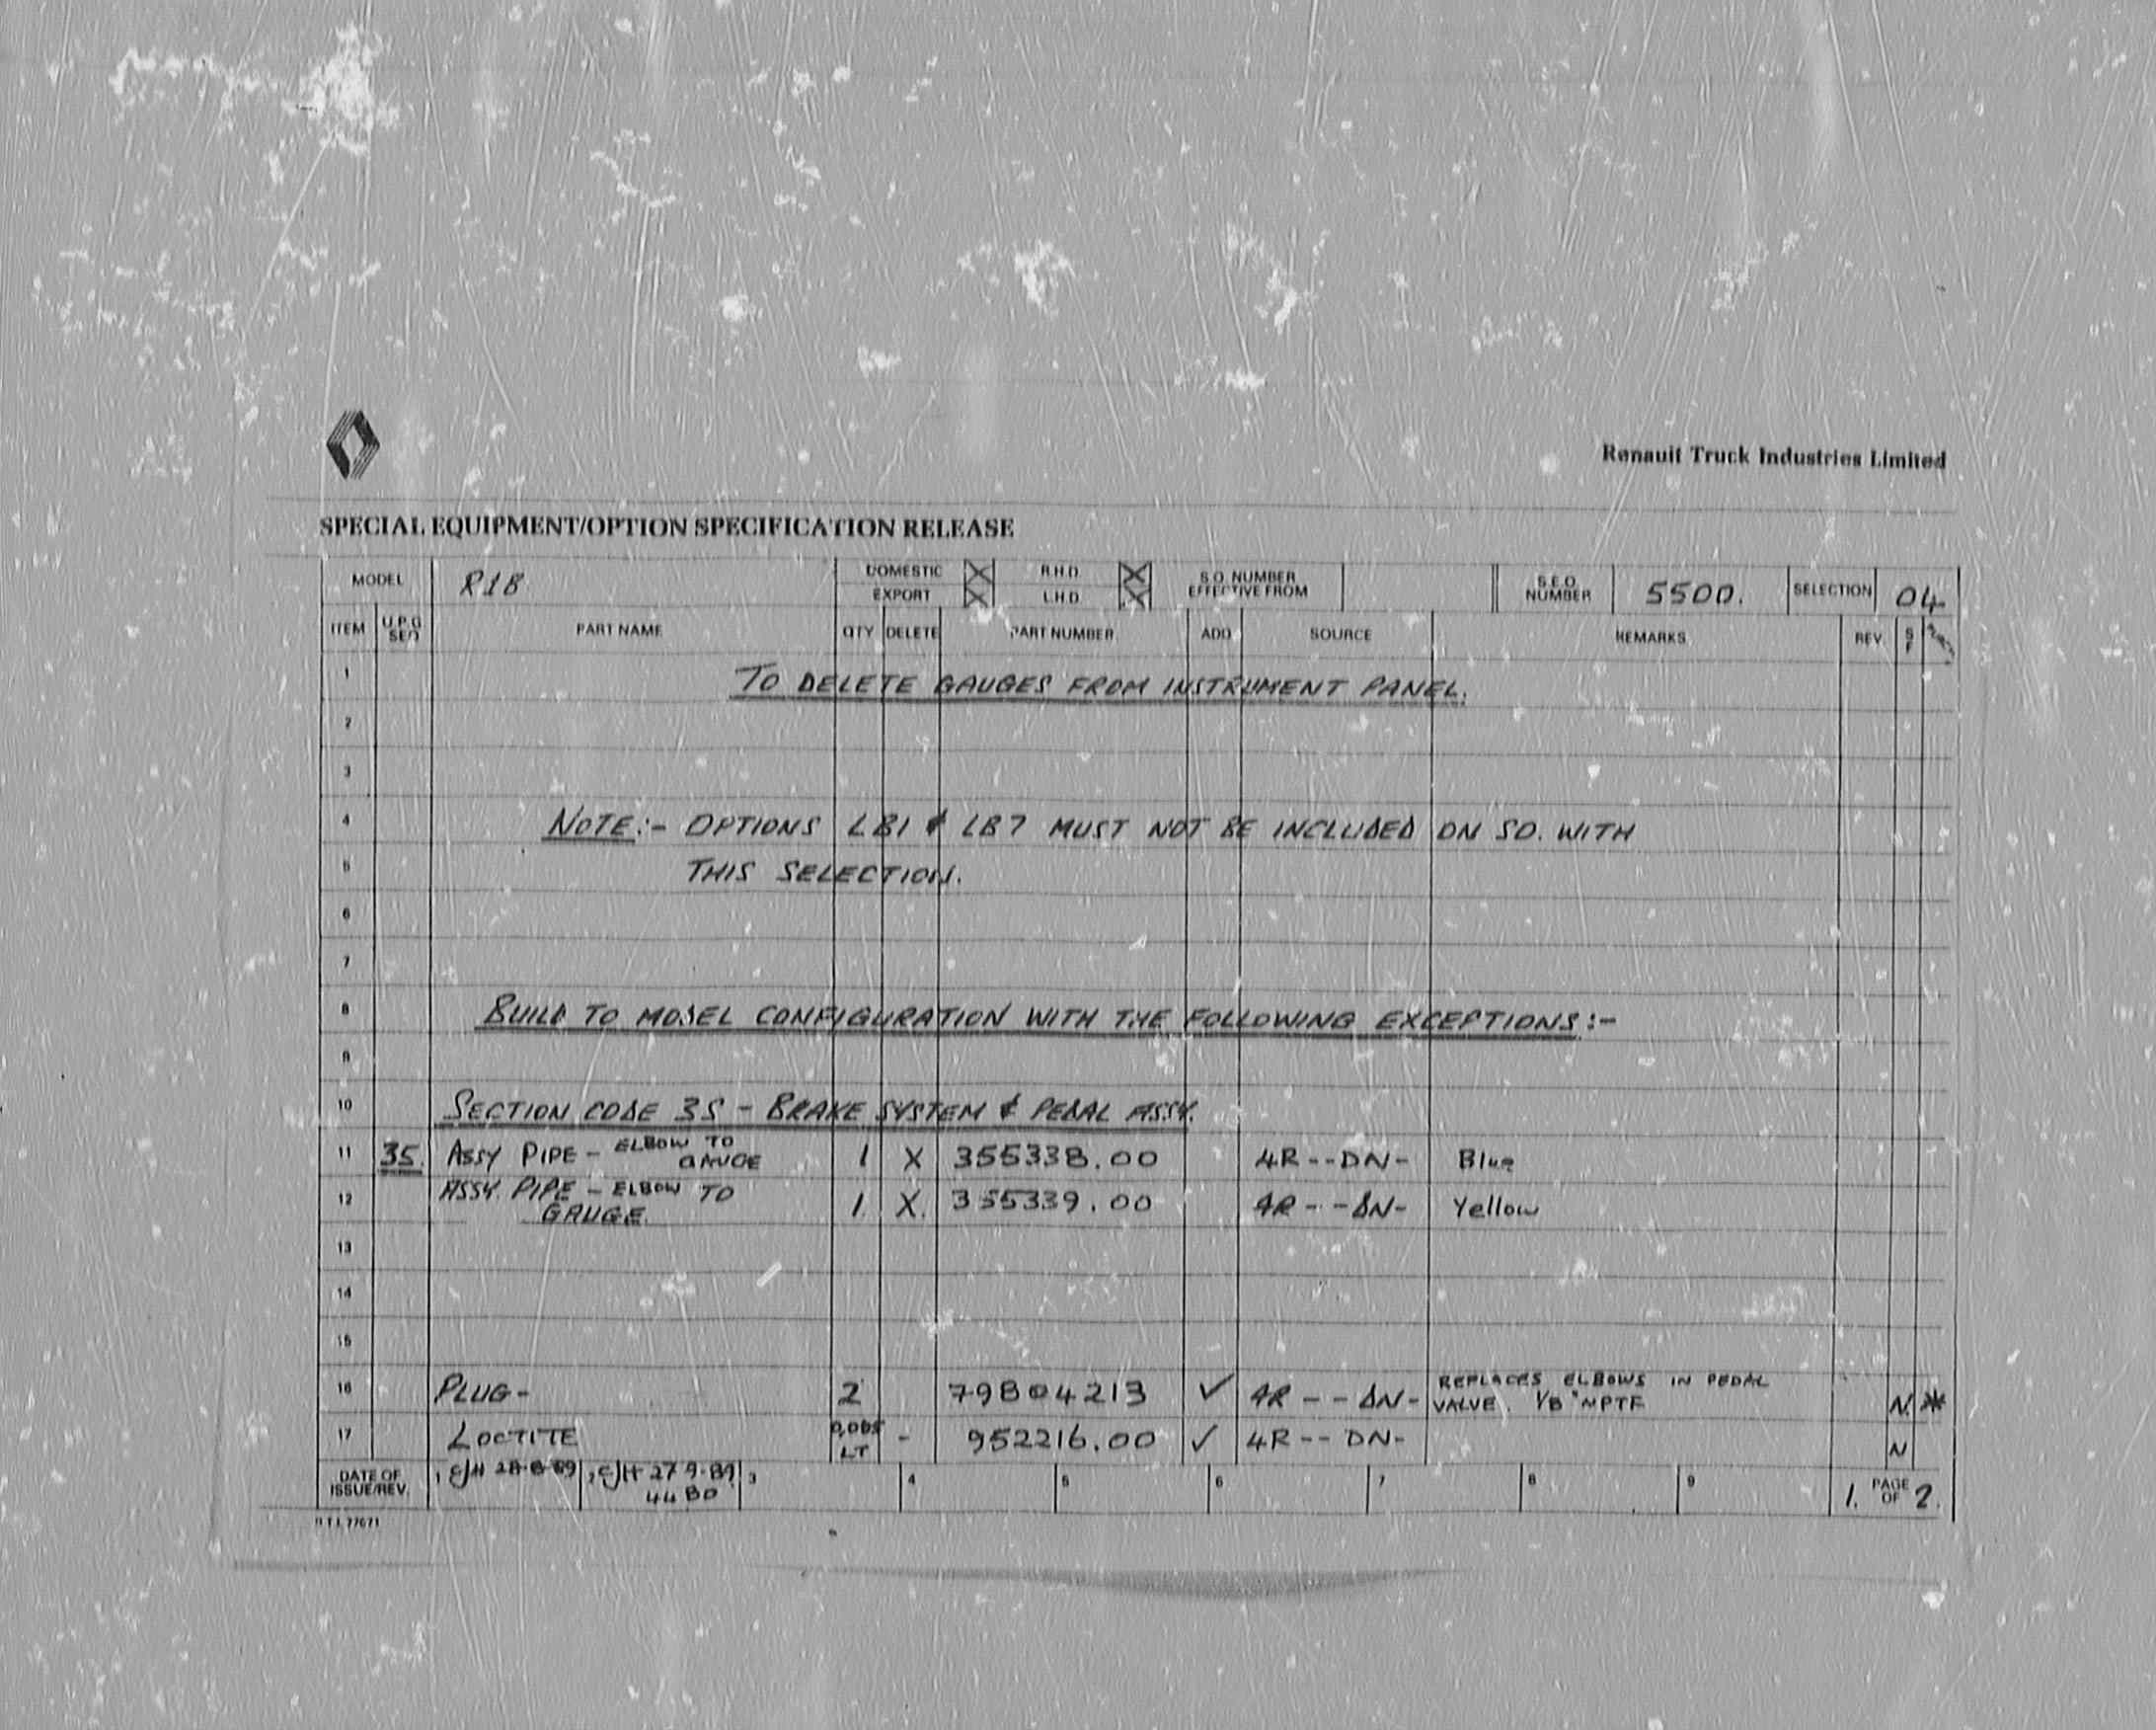 Renault Truck Industries Limited
SPECIAL EQUIPMENT/OPTION SPECIFICATION RELEASE
MODEL R1B DOMESTIC X R.H.D. X S.O. NUMBER EFFECTIVE FROM S.E.O. NUMBER 5500. SELECTION 04
EXPORT X L.H.D. X
ITEM U.P.G SEQ PART NAME QTY DELETE PART NUMBER ADD SOURCE REMARKS REV. S F
1 TO DELETE GAUGES FROM INSTRUMENT PANEL.
2
3
4 NOTE:- OPTIONS LB1 & LB7 MUST NOT BE INCLUDED ON SO. WITH
5 THIS SELECTION.
6
7
8 BUILD TO MODEL CONFIGURATION WITH THE FOLLOWING EXCEPTIONS:-
9
10 SECTION CODE 3S - BRAKE SYSTEM & PEDAL ASSY.
11 3S. ASSY PIPE - ELBOW TO GAUGE 1 X 355338.00 4R--DN- Blue
12 ASSY. PIPE - ELBOW TO GAUGE. 1. X. 355339.00 4R--DN- Yellow
13
14
15
16 PLUG- 2 79804213 ✓ 4R---DN- REPLACES ELBOWS IN PEDAL VALVE. 1/8" NPTF N. *
17 LOCTITE 0,005 LT - 952216.00 ✓ 4R--DN- N
DATE OF ISSUE/REV. 1 EJH 28-8-89 2 EJH 27 9-89 4480 3 4 5 6 7 8 9 1. PAGE OF 2.
R T I 77671